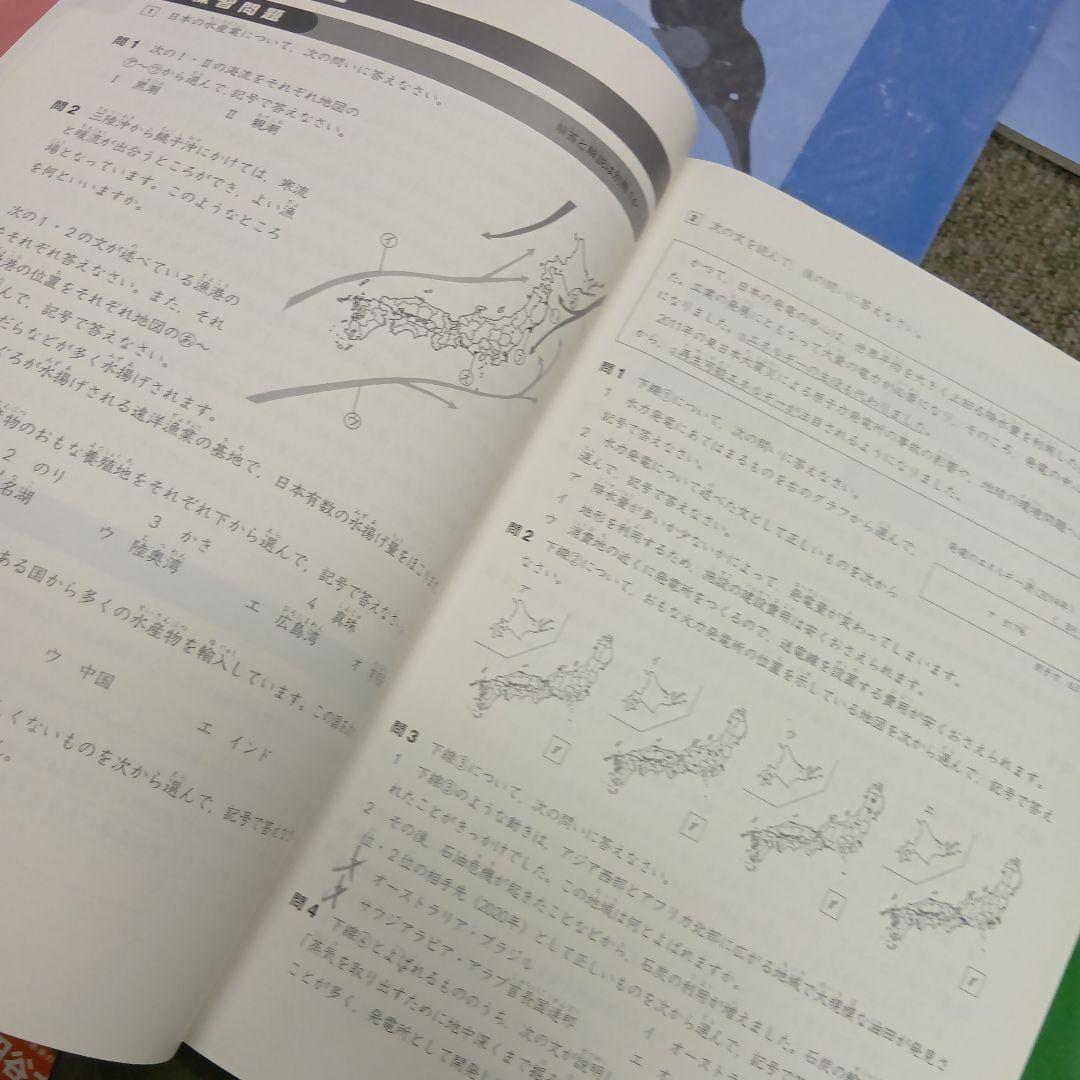 練習問題
1 日本の水産業について、次の問いに答えなさい。
問1 次のⅠ・Ⅱの海流をそれぞれ地図の
㋐～㋓から選んで、記号で答えなさい。
Ⅰ 黒潮 Ⅱ 親潮
問2 三陸沖から銚子沖にかけては、寒流
と暖流が出合うところができ、よい漁
場となっています。このようなところ
を何といいますか。
次の1・2の文が述べている漁港の
それぞれ答えなさい。また、それ
漁港の位置をそれぞれ地図のあ～
んで、記号で答えなさい。
だらなどが多く水揚げされます。
ぐろが水揚げされる遠洋漁業の基地で、日本有数の水揚げ量をほこ
物のおもな養殖地をそれぞれ下から選んで、記号で答えなさい。
2 のり 3 かき 4 真珠
名湖 ウ 陸奥湾 エ 広島湾 オ
ある国から多くの水産物を輸入しています。この国を
ウ 中国 エ インド
くないものを次から選んで、記号で答えな
解答と解説は別冊
イ
ウ
え
2 次の文を読んで、後の問いに答えなさい。
かつて、日本の発電の中心は、世界平均を大きく上回る降水量を利用した
た。工業の発展にともなって大量の電力が必要になり、そのころ、発電の中心
になりました。エネルギーの主役も代わりました。
2011年の東日本大震災による原子力発電所の事故の影響や、地球の環境問題へ
から、再生可能エネルギーが注目されるようになりました。
問1 下線①について、次の問いに答えなさい。
1 水力発電にあてはまるものを右のグラフから選んで、
記号で答えなさい。
2 水力発電について述べた文として正しいものを次から
選んで、記号で答えなさい。
ア 降水量が多いか少ないかによって、発電量が変わってしまいます。
イ 地形を利用するため、施設の建設費用は安くおさえられます。
ウ 消費地の近くに発電所をつくるので、送電線を設置する費用が安くおさえられます。
発電のエネルギー源
問2 下線②について、おもな火力発電所の位置を示している地図を次から選んで、記号で答え
なさい。
ア
イ
ウ
エ
問3 下線③について、次の問いに答えなさい。
1 下線③のような動きは、アジア西部とアフリカ北部に広がる地域で大規模な油田が発見さ
れたことがきっかけでした。この地域は何とよばれますか。
2 その後、石油危機が起きたことなどから、石炭の利用が増えました。石炭の
位・2位の相手先（2020年）として正しいものを次から選んで、記号で答
オーストラリア・ブラジル イ オースト
サウジアラビア・アラブ首長国連邦 エ オ
問4 下線④とよばれるもののうち、次の文が説明
「蒸気を取り出すために地中深くまで掘
ことが多く、発電所として開発